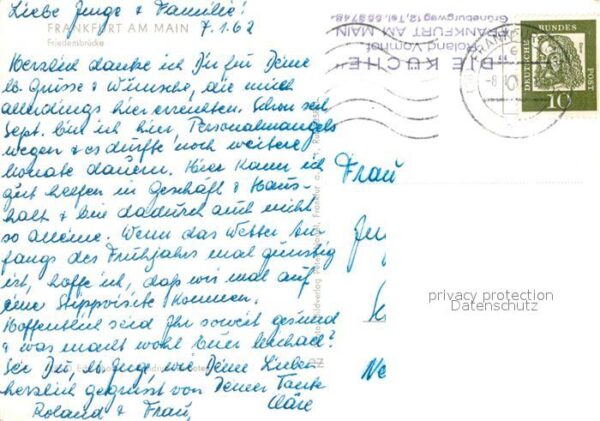 Liebe Inge & Familie!
7.1.62
FRANKFURT AM MAIN
Friedensbrücke
Herzlich danke ich Dir für Deine
lb. Grüsse & Wünsche, die mich
allerdings hier erreichten. Schon seit
Sept. bin ich hier, Personalmangels
wegen & es dürfte noch weitere
Monate dauern. Hier kann ich
gut helfen in Geschäft & Haus-
halt & bin dadurch auch nicht
so alleine. Wenn das Wetter An-
fangs des Frühjahrs mal günstig
ist, hoffe ich, daß wir mal auf
eine Stippvisite kommen.
Hoffentlich seid Ihr soweit gesund
& was macht wohl
Sei Du, lb. Inge wie Deine Lieben
herzlich gegrüsst von Deiner Tante
Cläre
Roland & Frau,
"DIE KÜCHE"
Roland Vomhof
FRANKFURT AM MAIN
Grüneburgweg 12, Tel.
DEUTSCHE
BUNDES
POST
10
Frau
privacy protection
Datenschutz